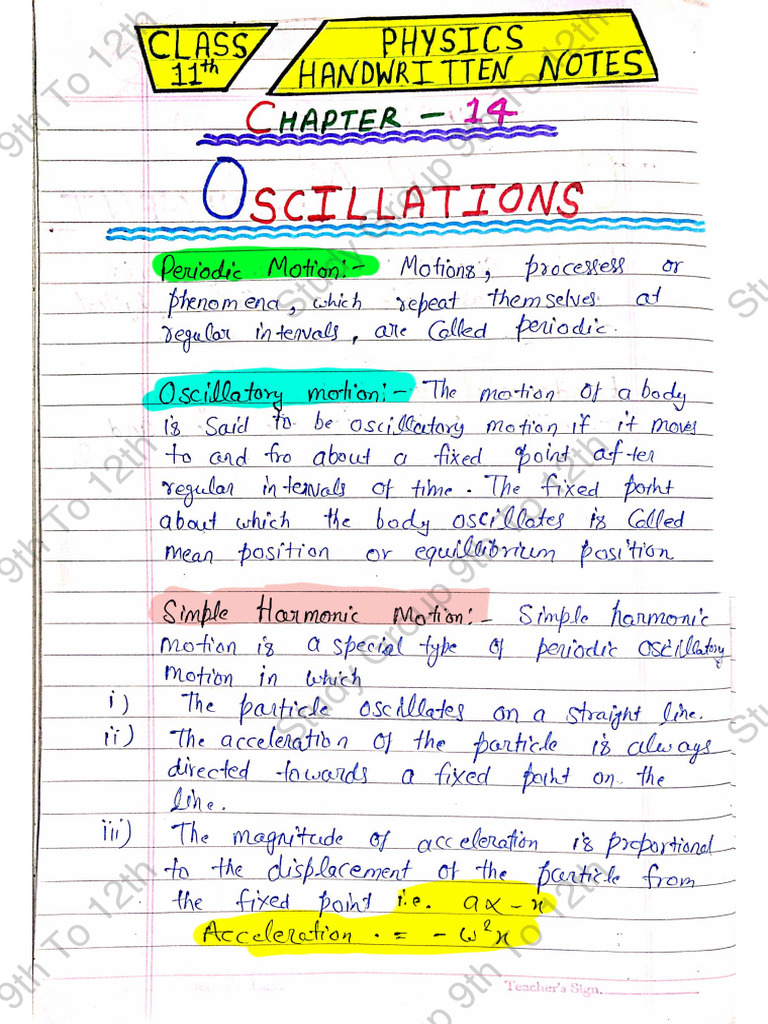 CLASS 11th
PHYSICS
HANDWRITTEN NOTES
CHAPTER - 14
OSCILLATIONS
Periodic Motion:- Motions, processess or
phenomena, which repeat themselves at
regular intervals, are Called periodic.
Oscillatory motion:- The motion of a body
is Said to be oscillatory motion if it moves
to and fro about a fixed point after
regular intervals of time. The fixed point
about which the body oscillates is Called
mean position or equillibrium position
Simple Harmonic Motion:- Simple harmonic
motion is a special type of periodic oscillatory
motion in which
i) The particle oscillates on a straight line.
ii) The acceleration of the particle is always
directed towards a fixed point on the
line.
iii) The magnitude of acceleration is proportional
to the displacement of the particle from
the fixed point i.e. a∝-x
Acceleration . = - ω²x
Teacher's Sign.
Study Group 9th To 12th
Study Group 9th To 12th
9th To 12th
9th To 12th
9th To 12th
9th To 12th
Stu
Stu